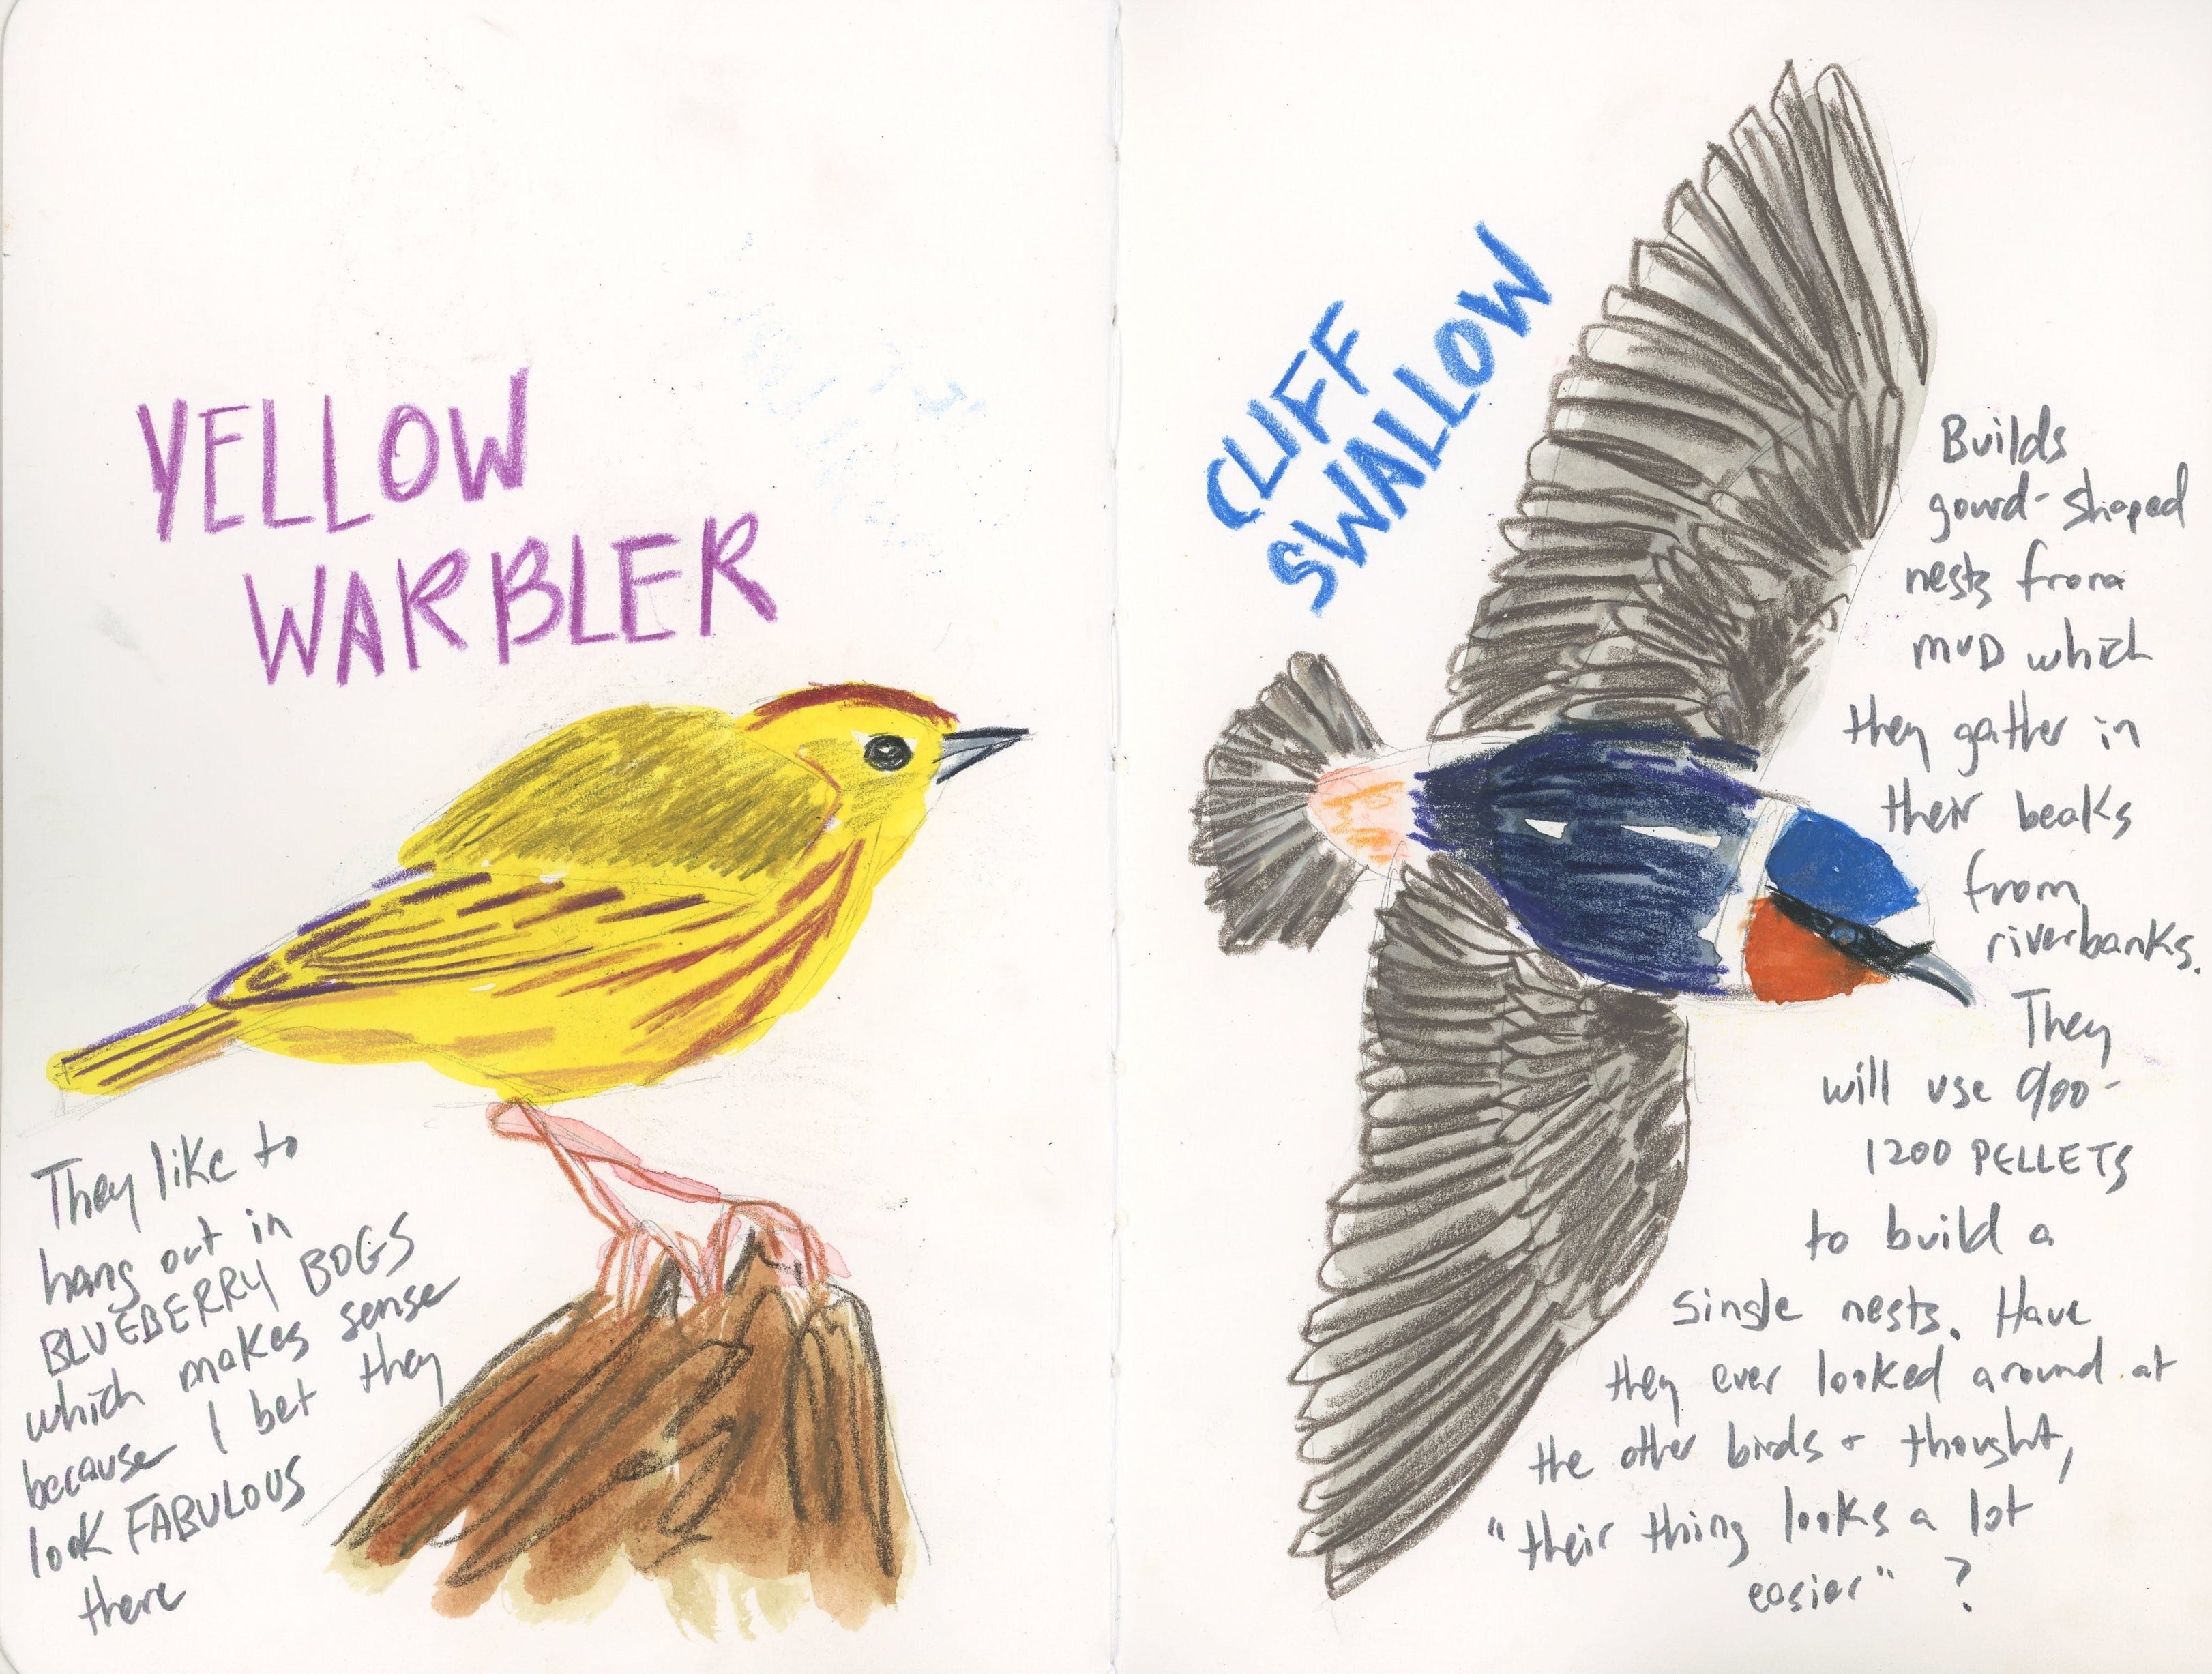 YELLOW
WARBLER
They like to
hang out in
BLUEBERRY BOGS
which makes sense
because I bet they
look FABULOUS
there
CLIFF
SWALLOW
Builds
gourd-shaped
nests from
MUD which
they gather in
their beaks
from
riverbanks.
They
will use 900-
1200 PELLETS
to build a
single nests. Have
they ever looked around at
the other birds + thought,
"their thing looks a lot
easier" ?